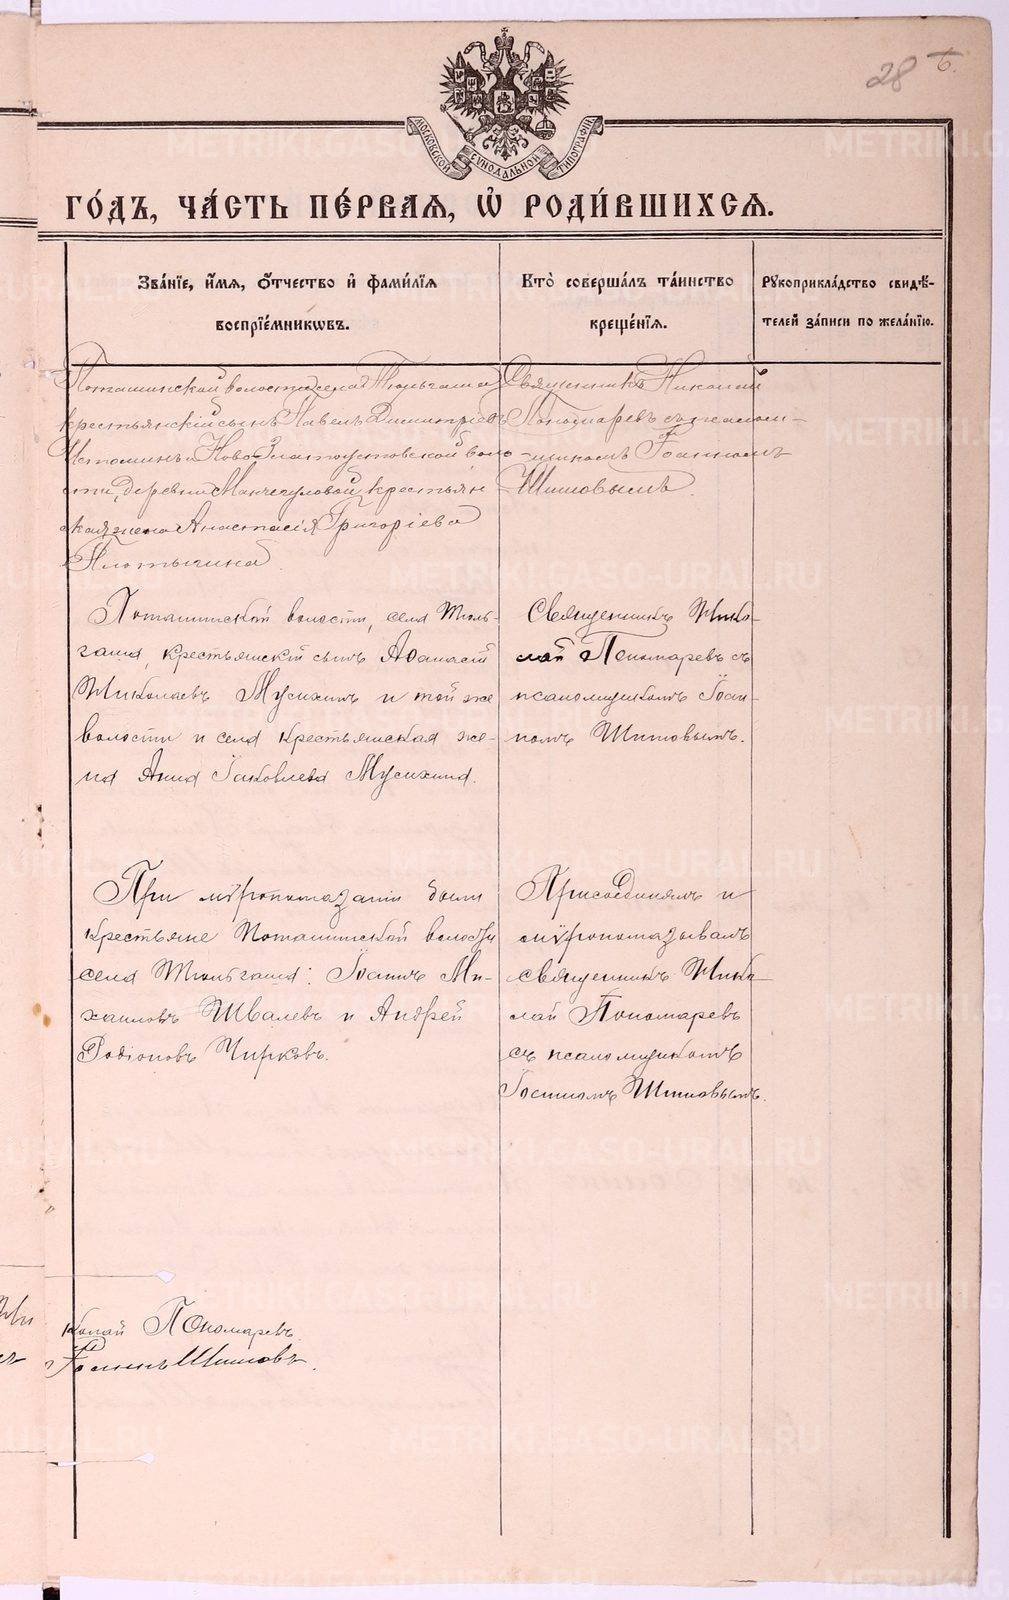 28 б.
МОСКОВСКОЙ СѴНОДАЛЬНОЙ ТИПОГРАФІИ
ГО́ДЪ, ЧА́СТЬ ПЕ́РВАѦ, Ѽ РОДИ́ВШИХСѦ.
Зва́нїе, и҆́мѧ, ѻ҆́тчество и҆ фами́лїѧ
воспрїе́мникѡвъ.
Кто̀ соверша́лъ та́инство
креще́нїѧ.
Рꙋкоприкла́дство свидѣ́-
телей за́писи по жела́нїю.
Поташинской волости села Тюльгаша
крестьянскій сынъ Павелъ Димитріевъ
Истоминъ и Ново Златоустовской воло
сти, деревни Манчегуловой, крестьян
ская жена Анастасія Григоріева
Плотычина.
Священникъ Николай
Пономаревъ съ псалом-
-щикомъ Іоанномъ
Шиловымъ.
Поташинской волости, села Тюль-
гаша, крестьянскій сынъ Аѳанасій
Николаевъ Мусихинъ и той же
волости и села крестьянская же-
на Анна Іаковлева Мусихина.
Священникъ Нико-
лай Пономаревъ съ
псаломщикомъ Іоан-
номъ Шиловымъ.
При мѵропомазаніи были
крестьяне Поташинской волости
села Тюльгаша: Іоаннъ Ми-
хаиловъ Швалевъ и Андрей
Родіоновъ Чирковъ.
Присоединялъ и
мѵропомазывалъ
священникъ Нико-
лай Пономаревъ
съ псаломщикомъ
Іоанномъ Шиловымъ.
колай Пономаревъ.
Іоаннъ Шиловъ.
METRIKI.GASO-URAL.RU